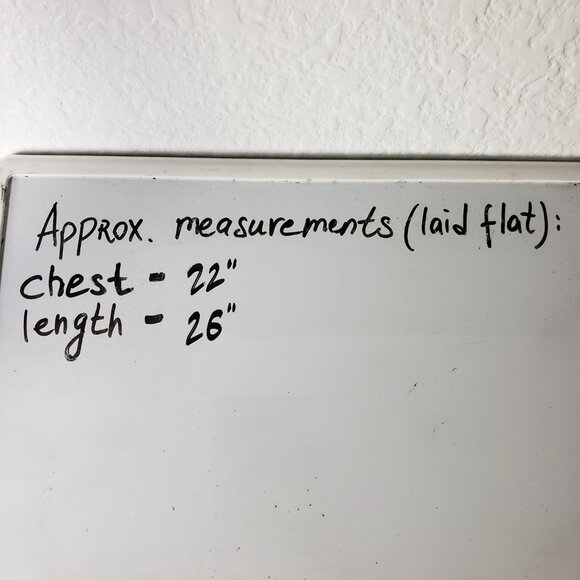 Approx. measurements (laid flat):
chest - 22"
length - 26"